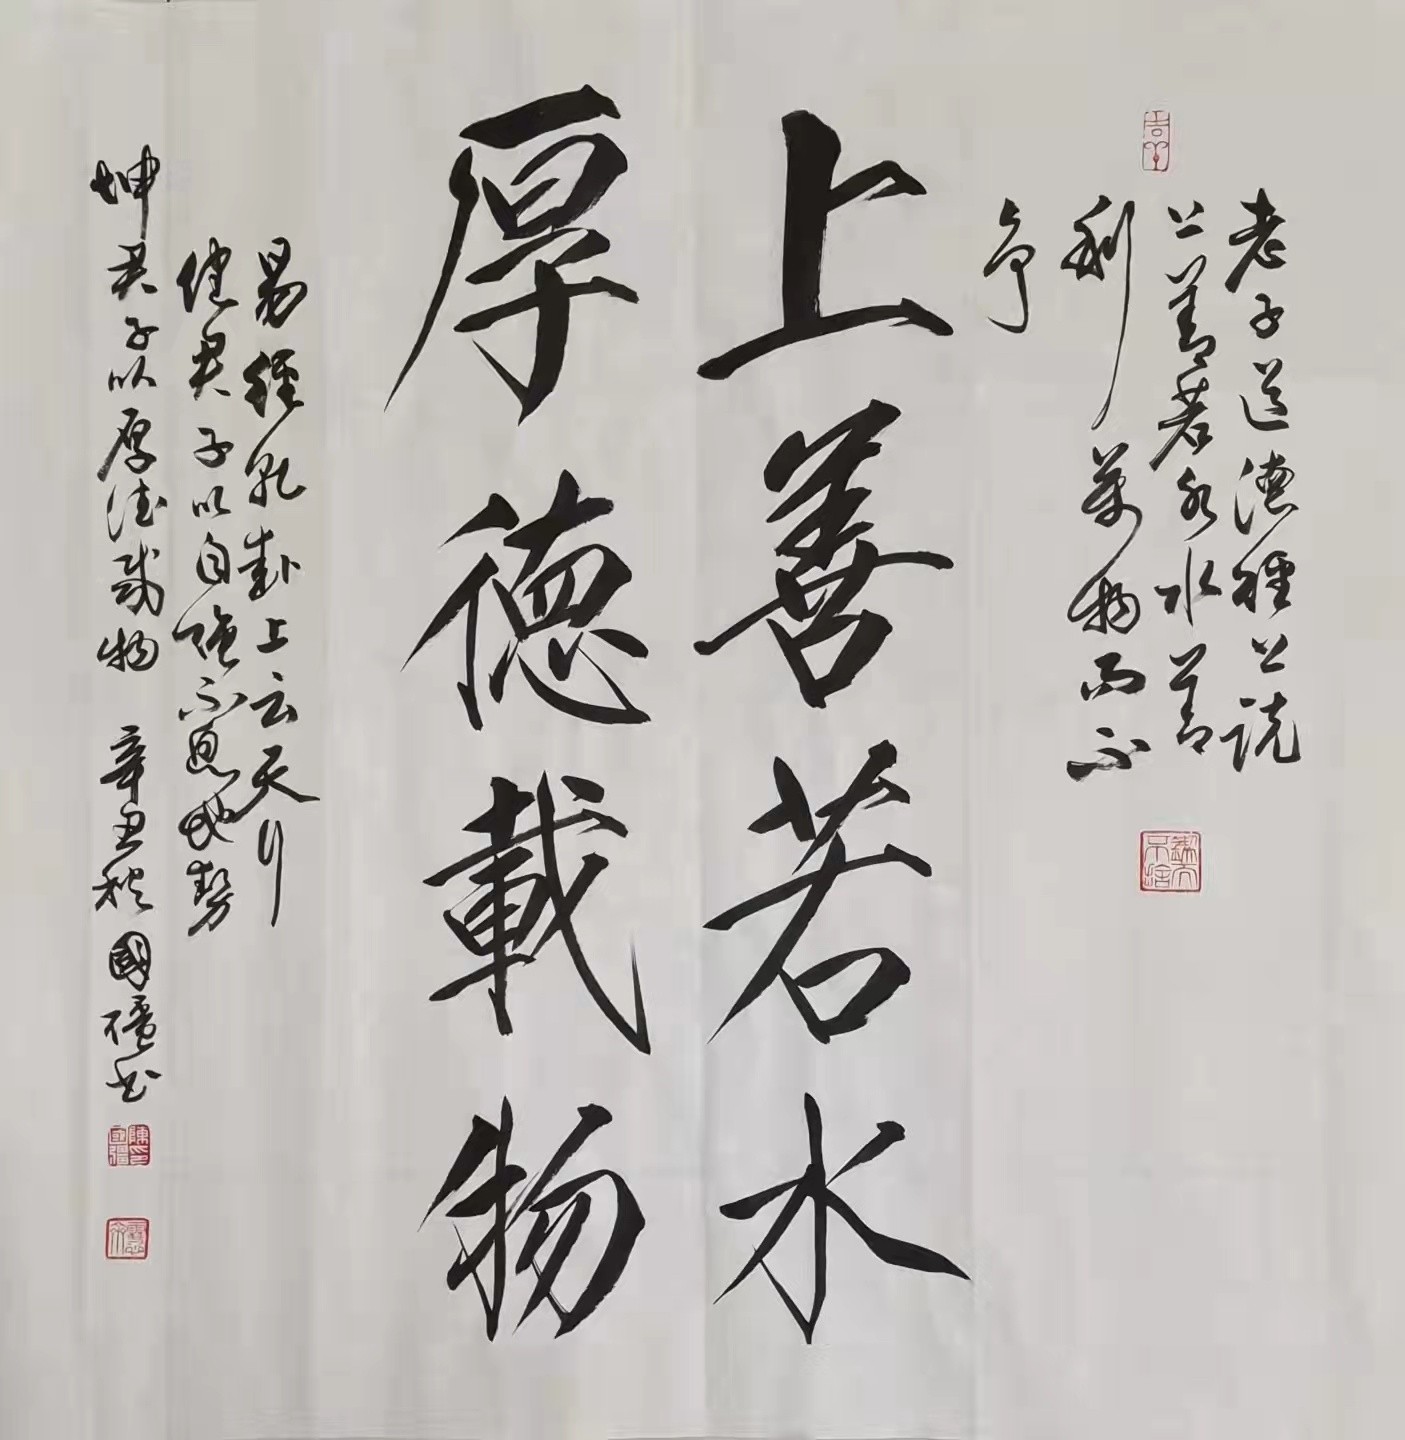 老子道德经上说
上善若水水善
利万物而不
争
上善若水
厚德載物
易經乾卦上云天行
健君子以自强不息地势
坤君子以厚德载物 辛丑秋 國疆书
鍥而
不舍